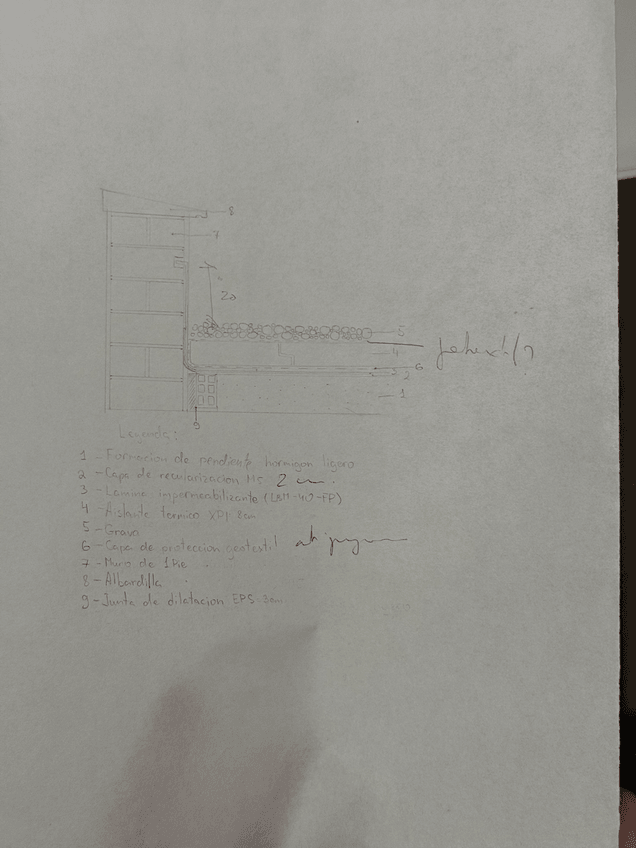 8
7
20
5
4
6
3
2
1
9
Leyenda:
1 - Formacion de pendiente hormigon ligero
2 - Capa de recularización M5 2 cm.
3 - Lamina impermeabilizante (LBM-40-FP)
4 - Aislante termico XPS 8cm
5 - Grava
6 - Capa de proteccion geotextil
7 - Muro de 1 Pie
8 - Albardilla
9 - Junta de dilatacion EPS 3cm